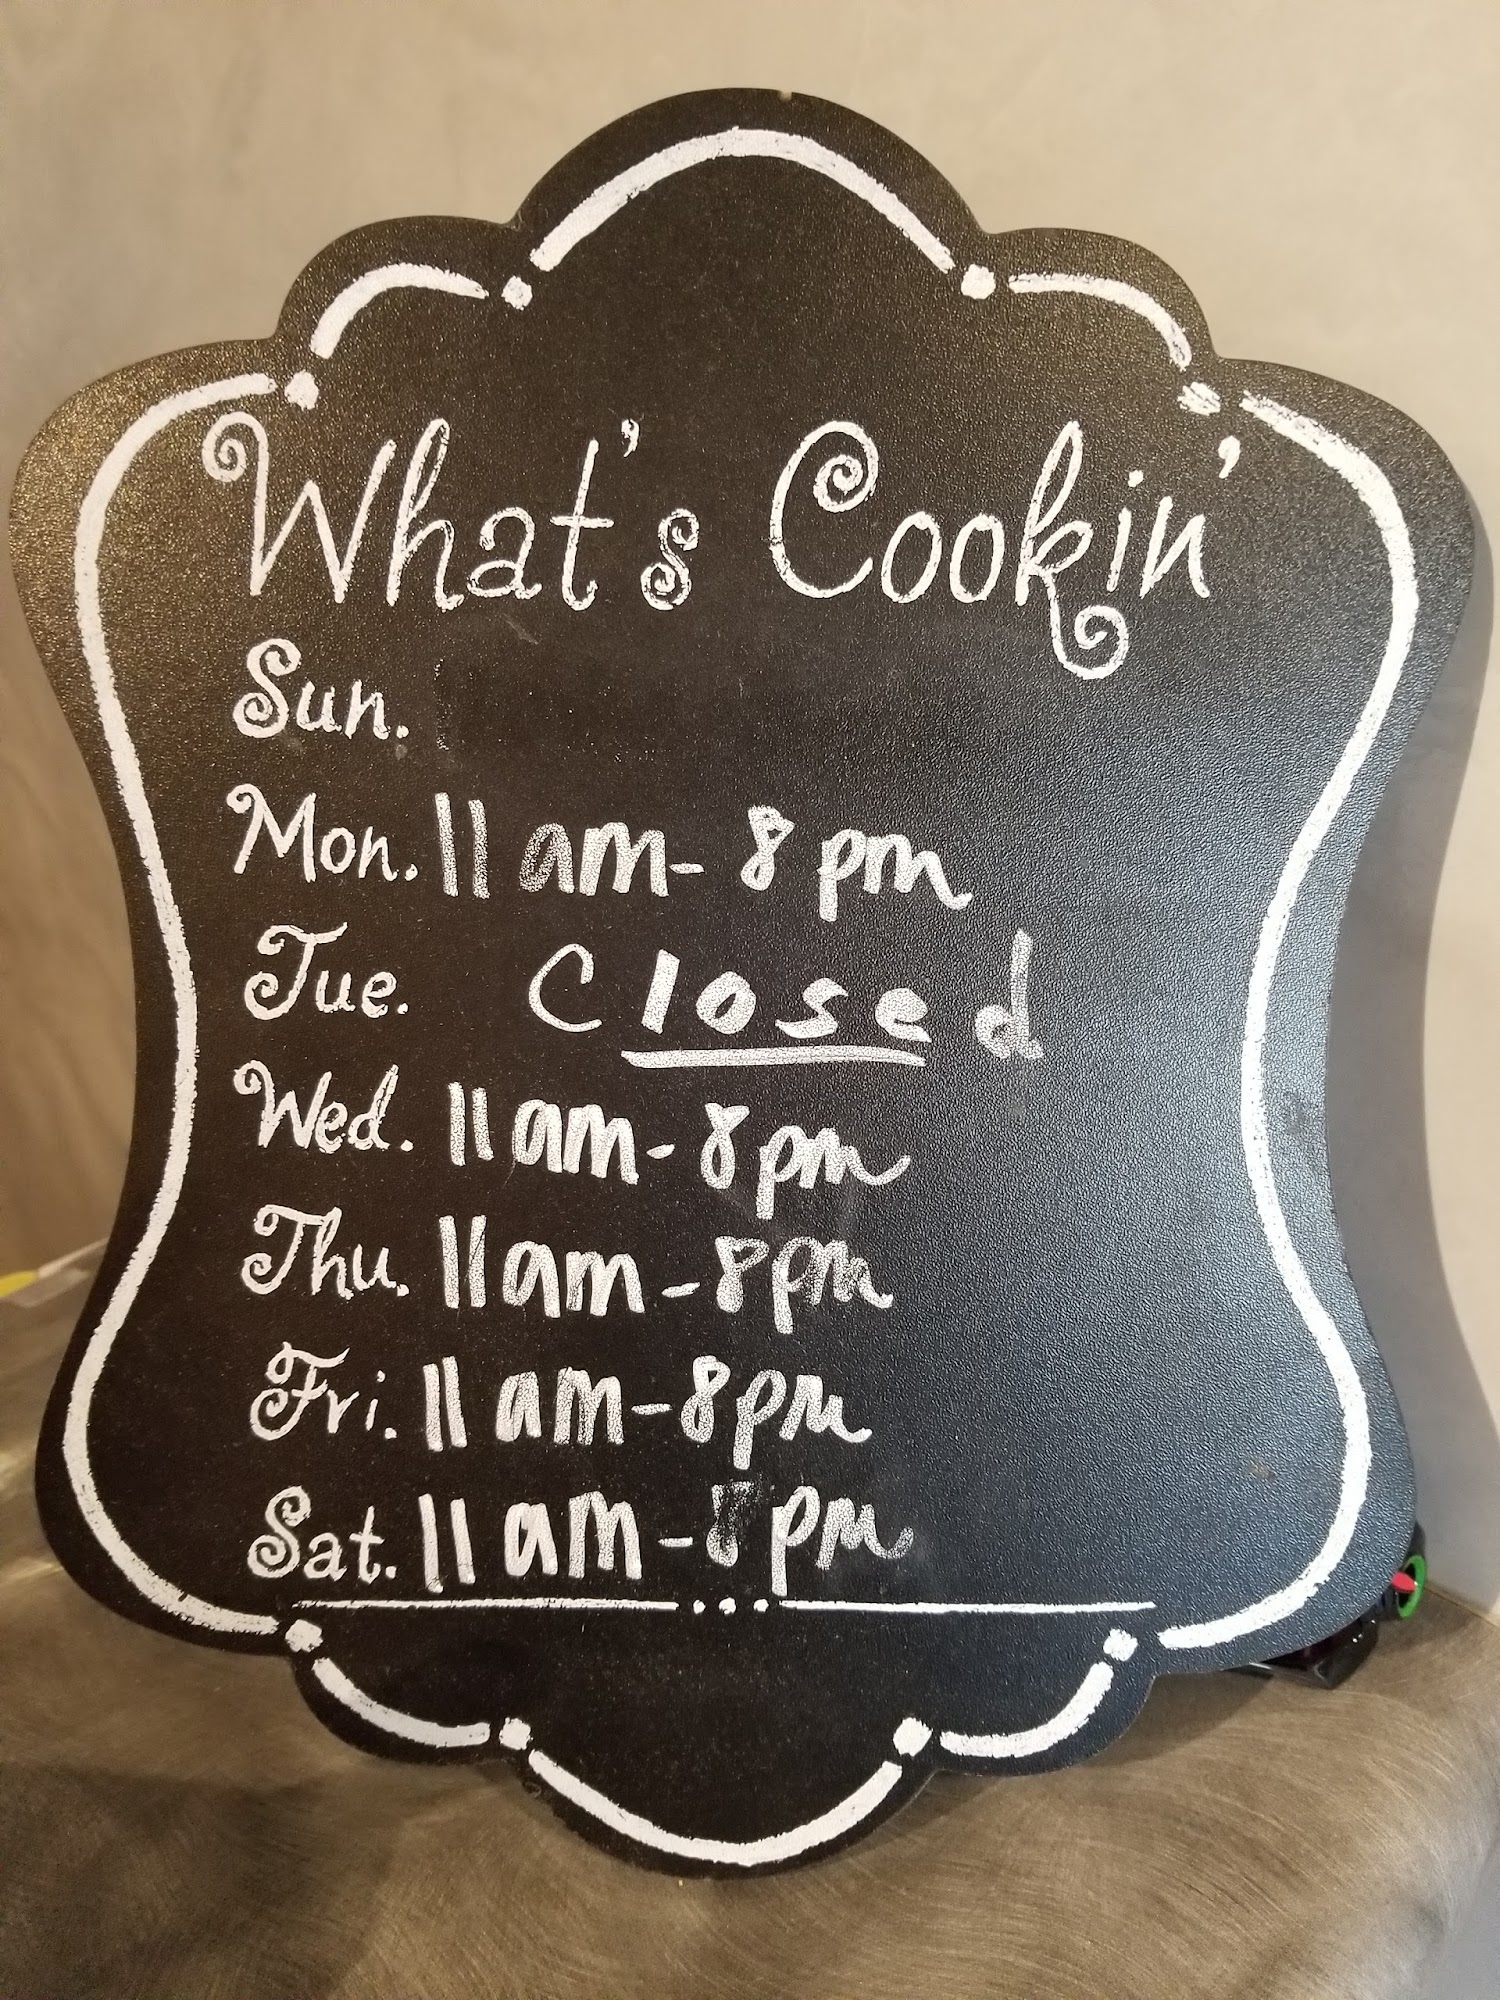 What's Cookin'
Sun.
Mon. 11 am - 8 pm
Tue. Closed
Wed. 11 am - 8 pm
Thu. 11 am - 8 pm
Fri. 11 am - 8 pm
Sat. 11 am - 8 pm